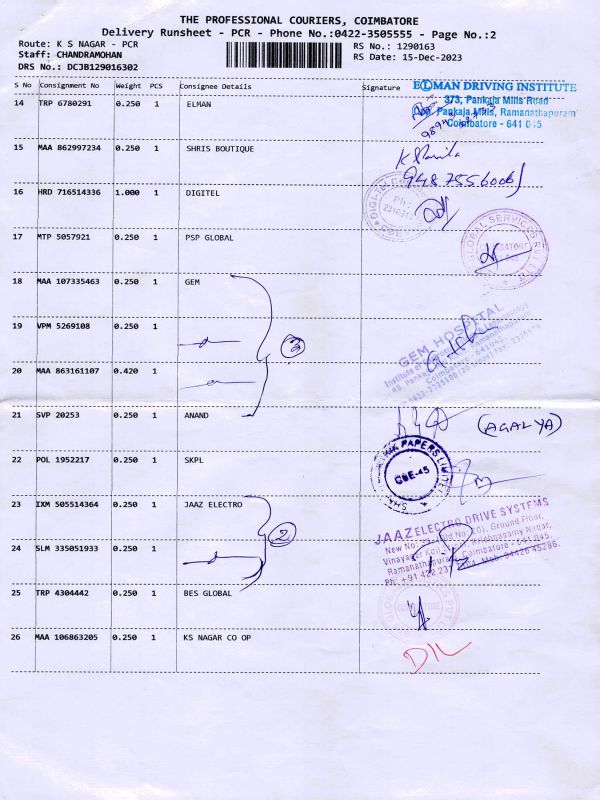 THE PROFESSIONAL COURIERS, COIMBATORE
Delivery Runsheet - PCR - Phone No.:0422-3505555 - Page No.:2
Route: K S NAGAR - PCR
Staff: CHANDRAMOHAN
DRS No.: DCJB129016302
RS No.: 1290163
RS Date: 15-Dec-2023
S No Consignment No Weight PCS Consignee Details Signature
ELMAN DRIVING INSTITUTE
373, Pankaja Mills Road
Opp. Pankaja Mills, Ramanathapuram
Coimbatore - 641 045
14 TRP 6780291 0.250 1 ELMAN
15 MAA 862997234 0.250 1 SHRIS BOUTIQUE
9487556006
16 HRD 716514336 1.000 1 DIGITEL
17 MTP 5057921 0.250 1 PSP GLOBAL
GLOBAL SERVICES
18 MAA 107335463 0.250 1 GEM
GEM HOSPITAL
19 VPM 5269108 0.250 1
3
20 MAA 863161107 0.420 1
21 SVP 20253 0.250 1 ANAND
(AGALYA)
22 POL 1952217 0.250 1 SKPL
PAPERS LIMITED
CBE-45
23 IXM 505514364 0.250 1 JAAZ ELECTRO
2
JAAZ ELECTRO DRIVE SYSTEMS
Ground Floor,
Krishnasamy Nagar,
Coimbatore - 641 045.
24 SLM 335051933 0.250 1
25 TRP 4304442 0.250 1 BES GLOBAL
26 MAA 106863205 0.250 1 KS NAGAR CO OP
D/L